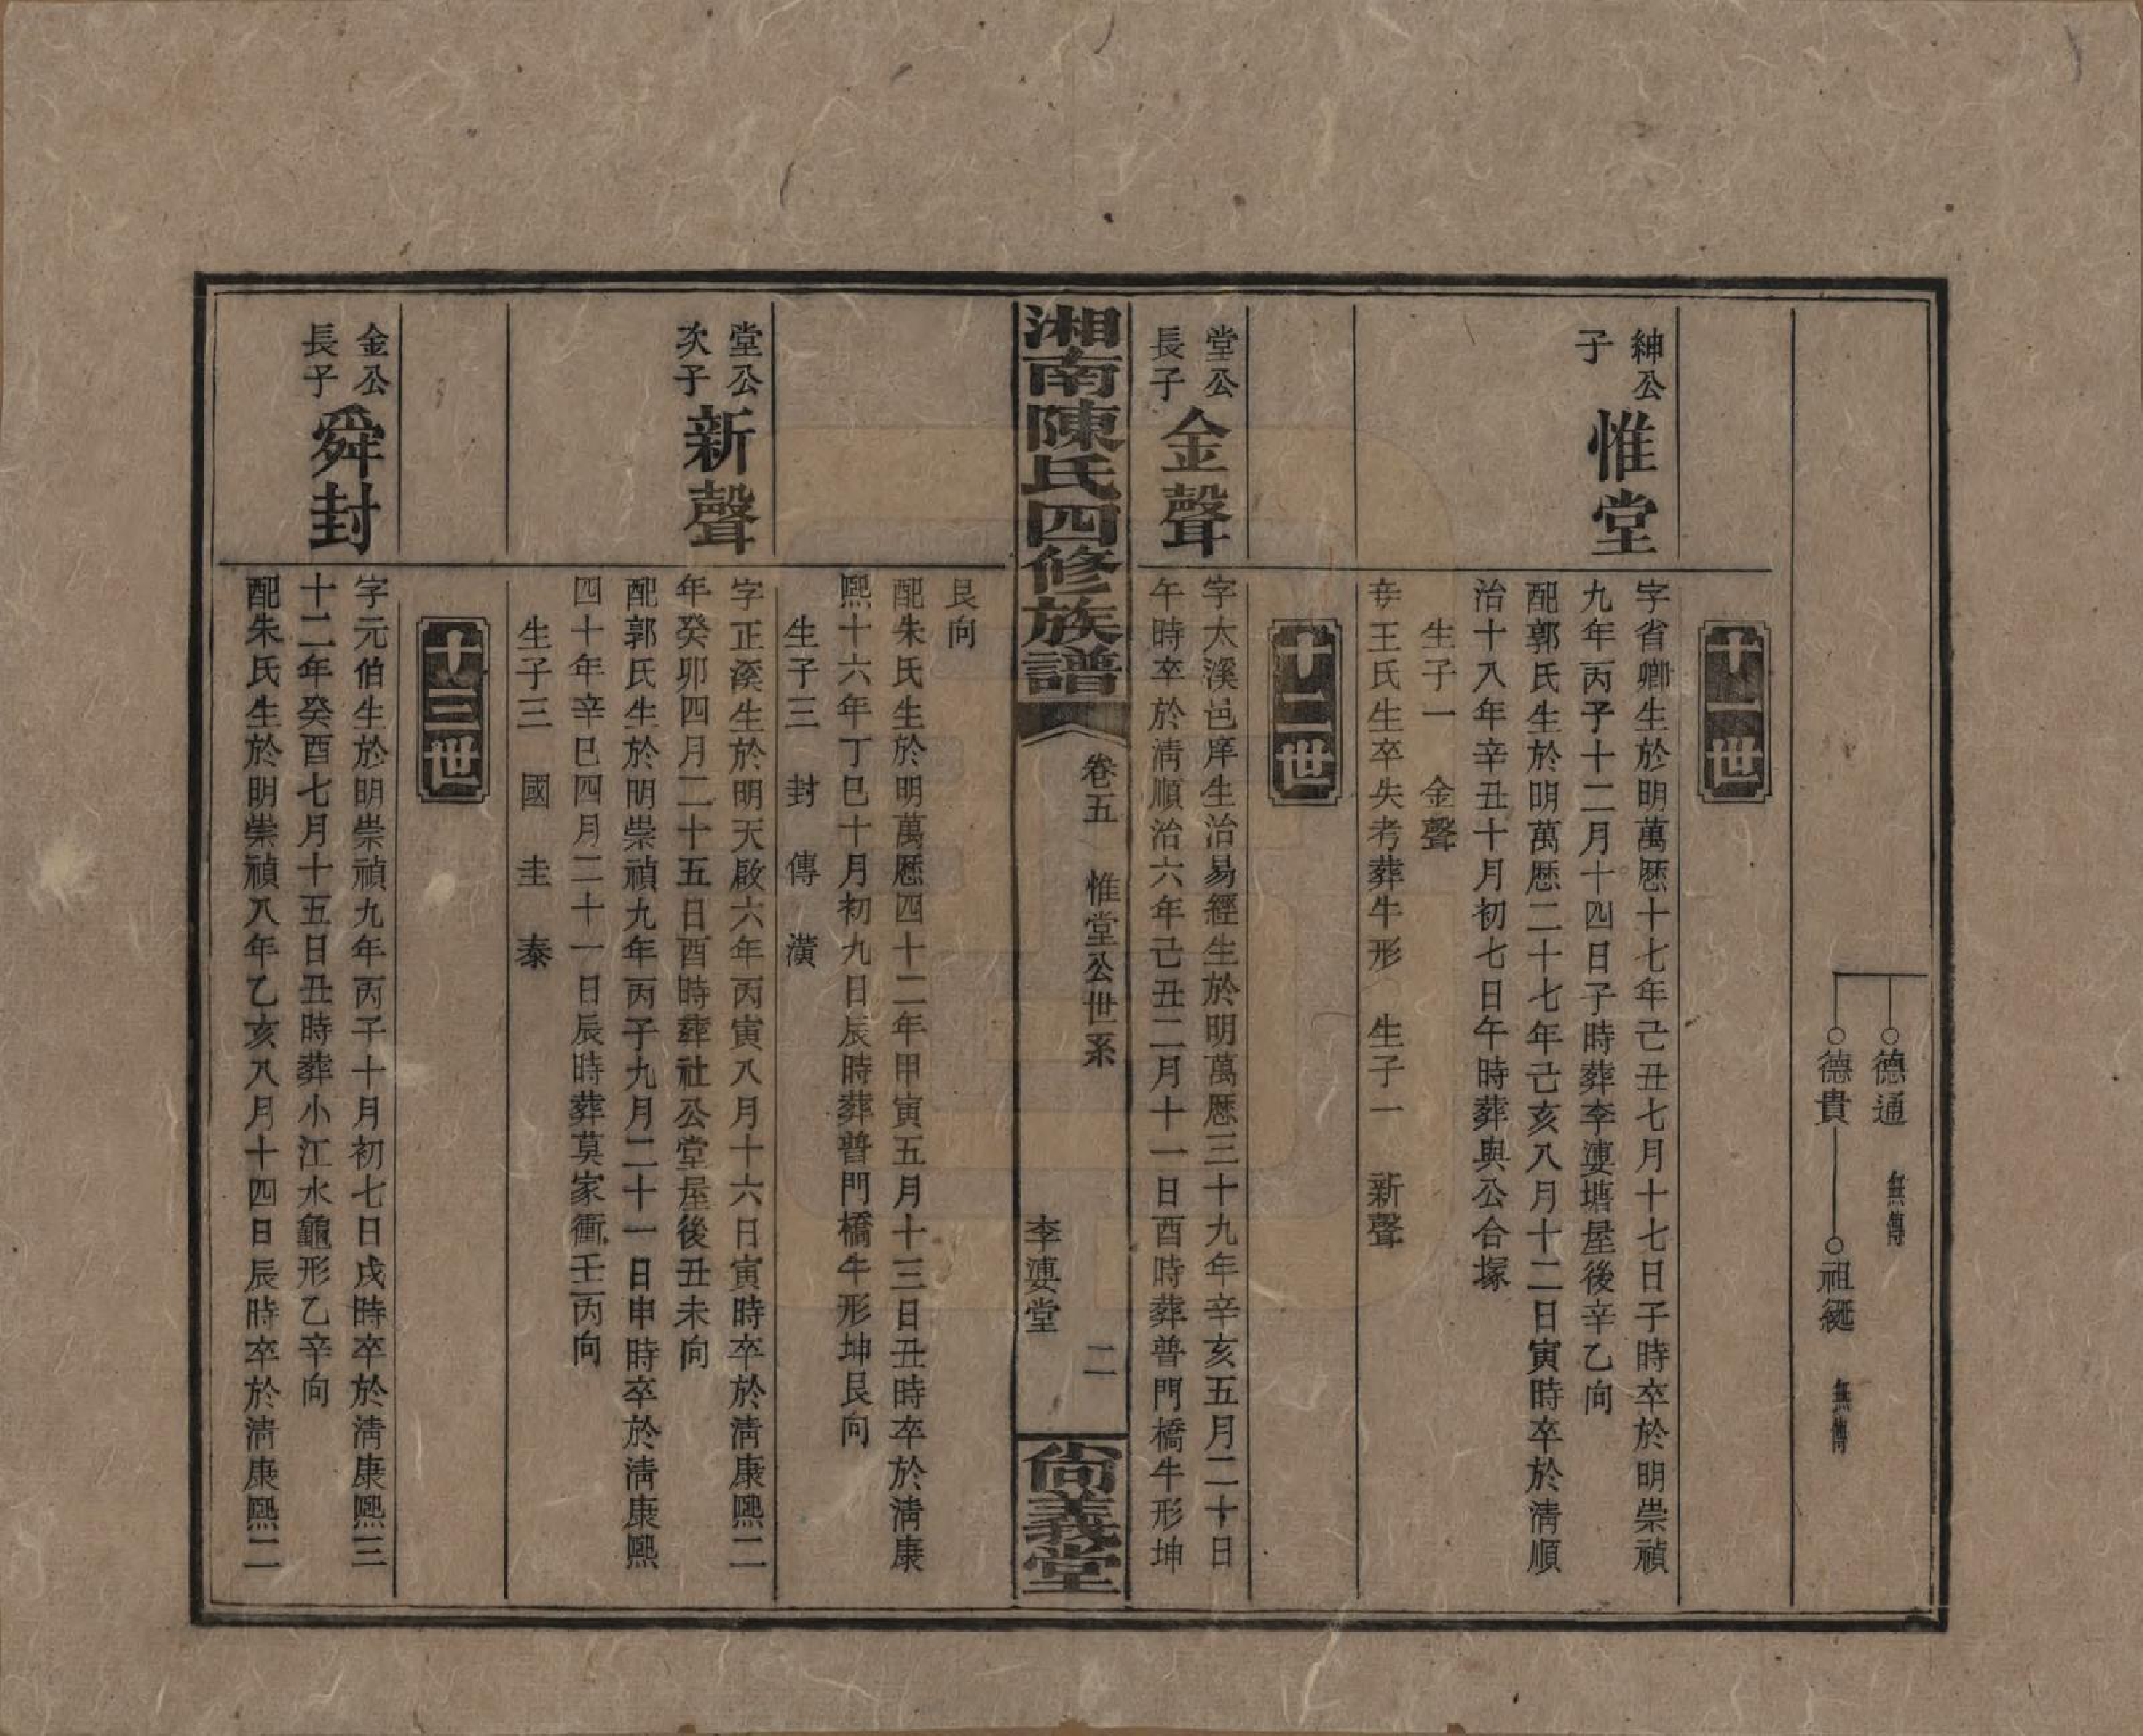 德通 無傳
德貴 祖綖 無傳
十一世
紳公
子
惟堂
字省卿生於明萬厯十七年己丑七月十七日子時卒於明崇禎
九年丙子十二月十四日子時葬李婆塘屋後辛乙向
配郭氏生於明萬厯二十七年己亥八月十二日寅時卒於清順
治十八年辛丑十月初七日午時葬與公合塚
生子一 金聲
幸王氏生卒失考葬牛形 生子一 新聲
十二世
堂公
長子
金聲
字太溪邑庠生治易經生於明萬厯三十九年辛亥五月二十日
午時卒於清順治六年己丑二月十一日酉時葬普門橋牛形坤
湘南陳氏四修族譜
卷五 惟堂公世系 二
李婆堂
尚義堂
艮向
配朱氏生於明萬厯四十二年甲寅五月十三日丑時卒於清康
熙十六年丁巳十月初九日辰時葬普門橋牛形坤艮向
生子三 封 傳 潢
堂公
次子
新聲
字正溪生於明天啟六年丙寅八月十六日寅時卒於清康熙二
年癸卯四月二十五日酉時葬社公堂屋後丑未向
配郭氏生於明崇禎九年丙子九月二十一日申時卒於清康熙
四十年辛巳四月二十一日辰時葬莫家衝壬丙向
生子三 國 圭 泰
十三世
金公
長子
舜封
字元伯生於明崇禎九年丙子十月初七日戌時卒於清康熙三
十二年癸酉七月十五日丑時葬小江水龜形乙辛向
配朱氏生於明崇禎八年乙亥八月十四日辰時卒於清康熙二